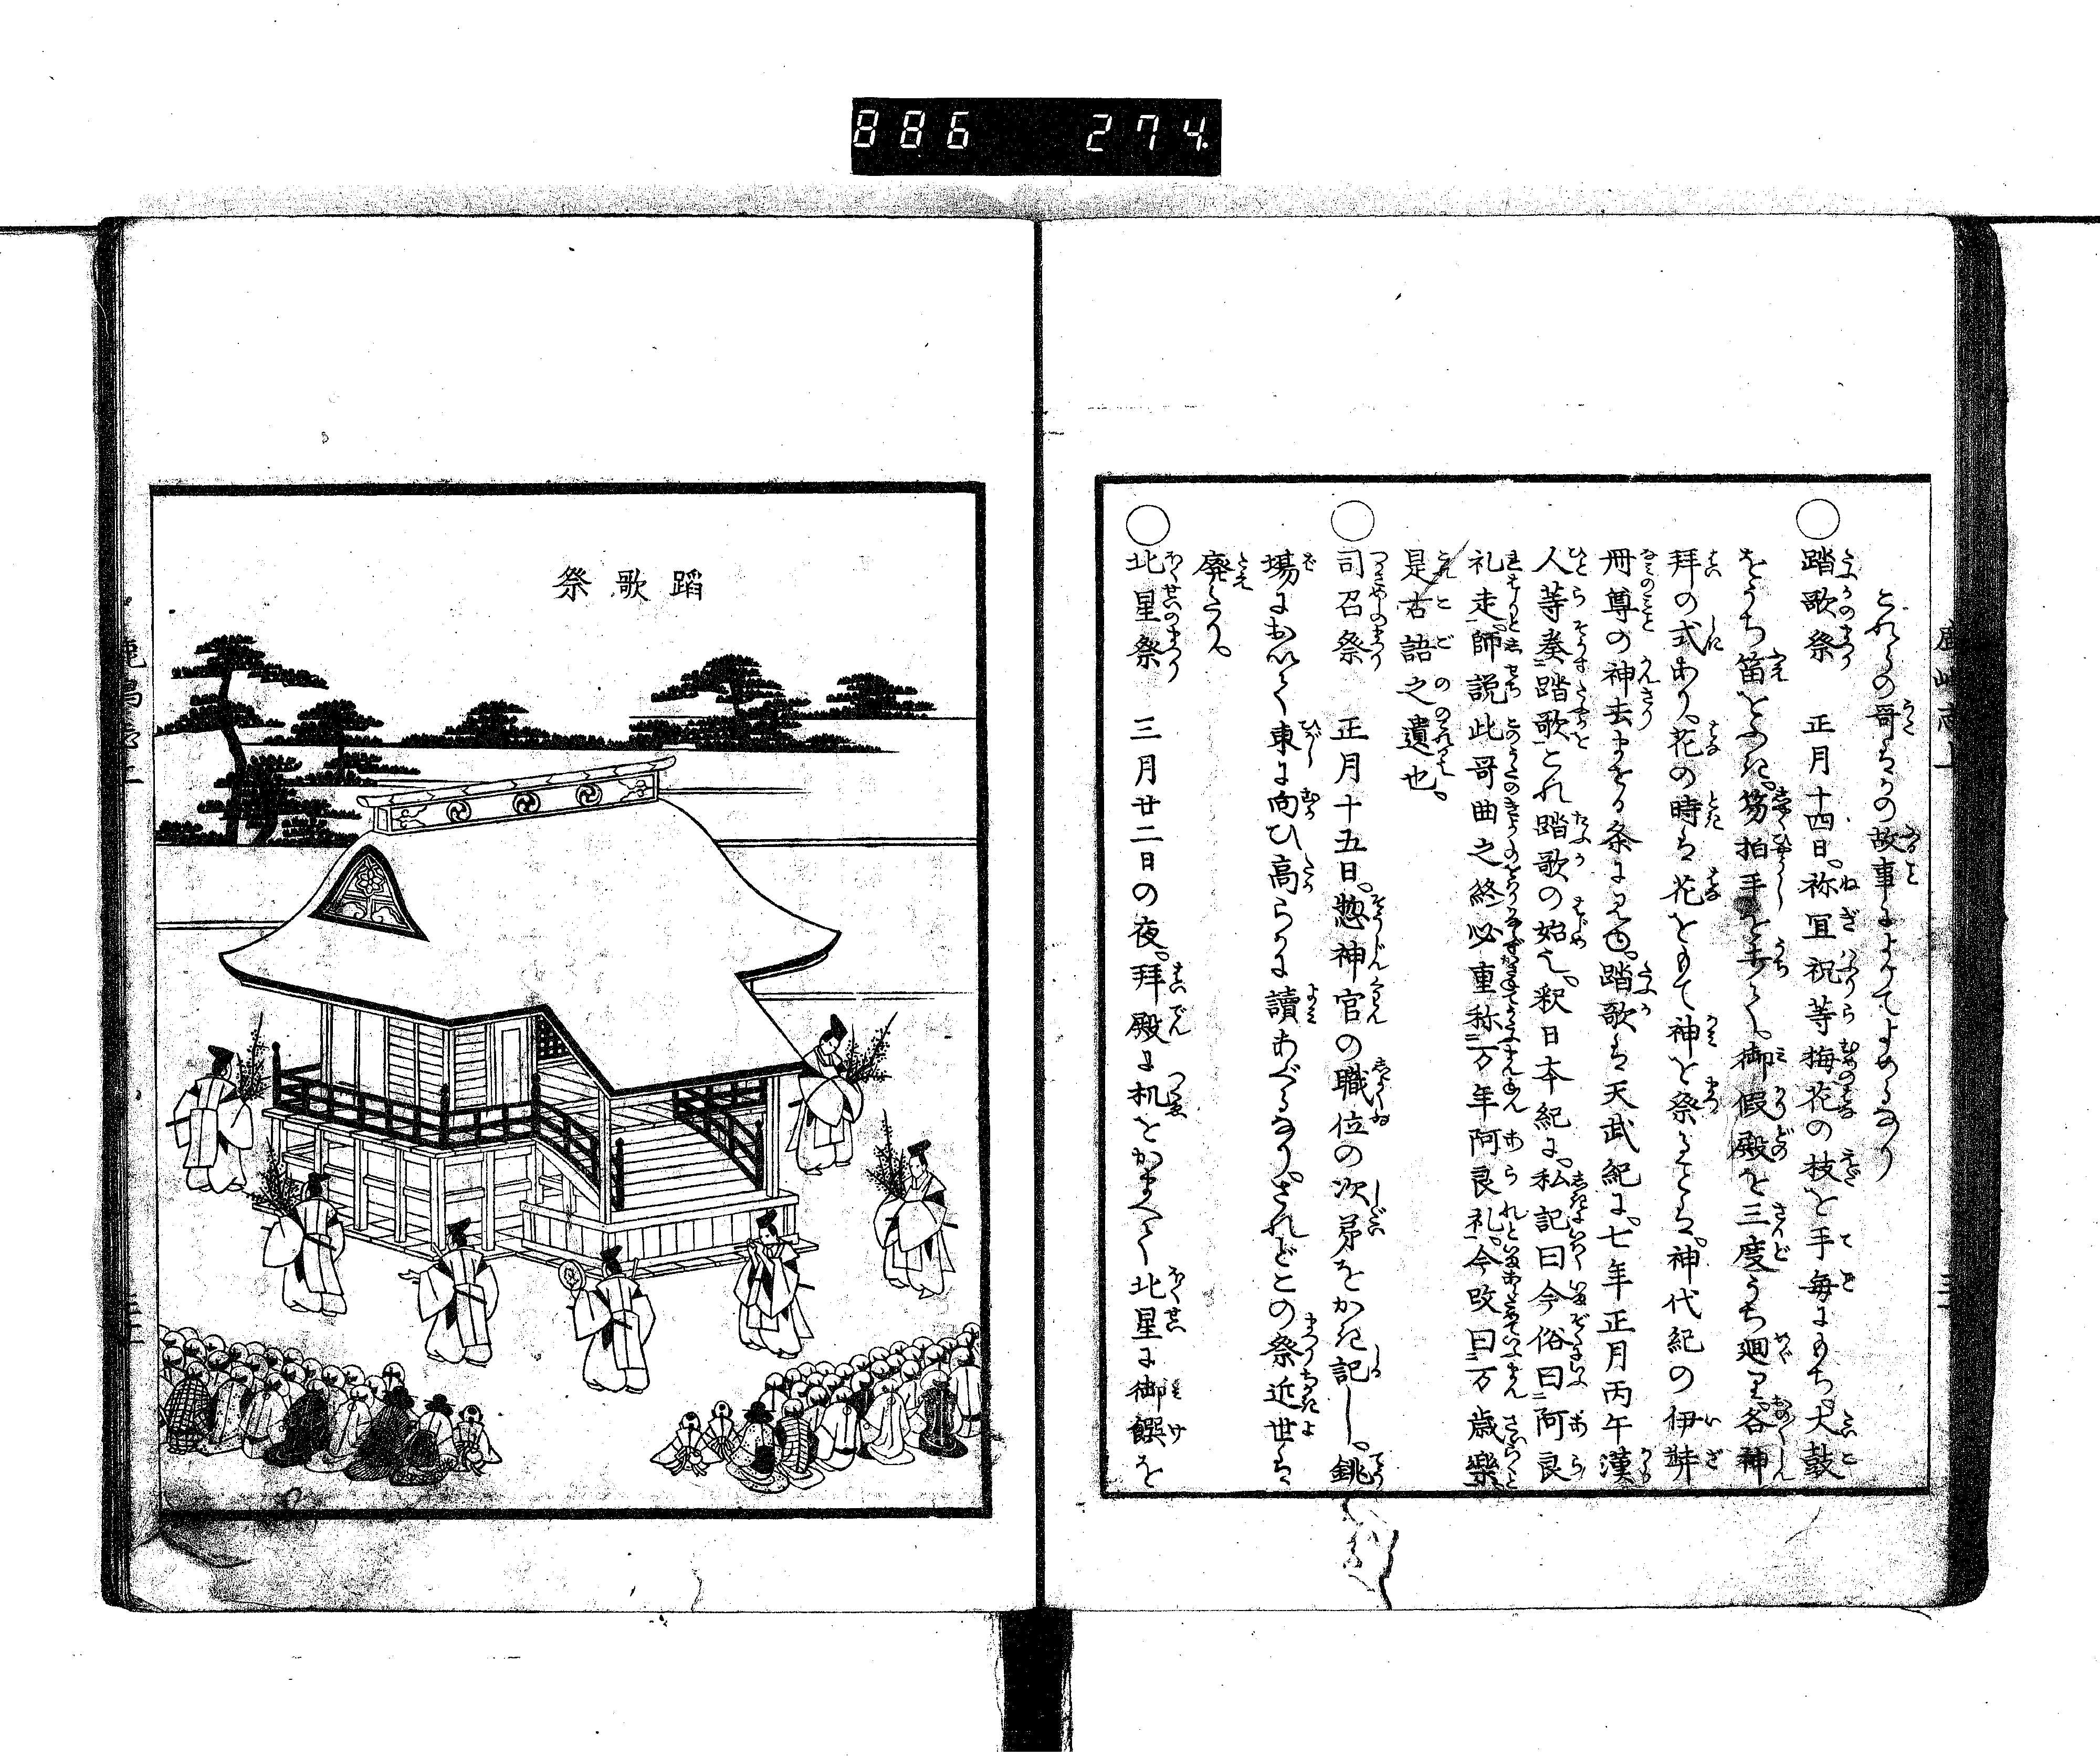 886 274
これらの哥はかの故事によりてよめるなり
○踏歌祭 正月十四日。祢宜祝等梅花の枝を手毎にもち。大鼓
をうち笛をふき。笏拍手を手うちて。御假殿を三度うち廻り。各神
拜の式あり。花の時は花をもて神を祭ること。神代紀の伊弉
冊尊の神去ませる条に見也。踏歌は天武紀に。七年正月丙午漢
人等奏踏歌これ踏歌の始也。釈日本紀に。私記曰今俗曰阿良
礼走。師説此哥曲之終必重称万年阿良礼。今改曰万歳樂
是古語之遺也。
○司召祭 正月十五日。惣神官の職位の次第をかき記し。銚
場において東に向ひ高らかに讀あぐるなり。されどこの祭近世は
廃たり。
○北星祭 三月廿二日の夜。拜殿に机をかまへて北星に御饌を
蹈歌祭